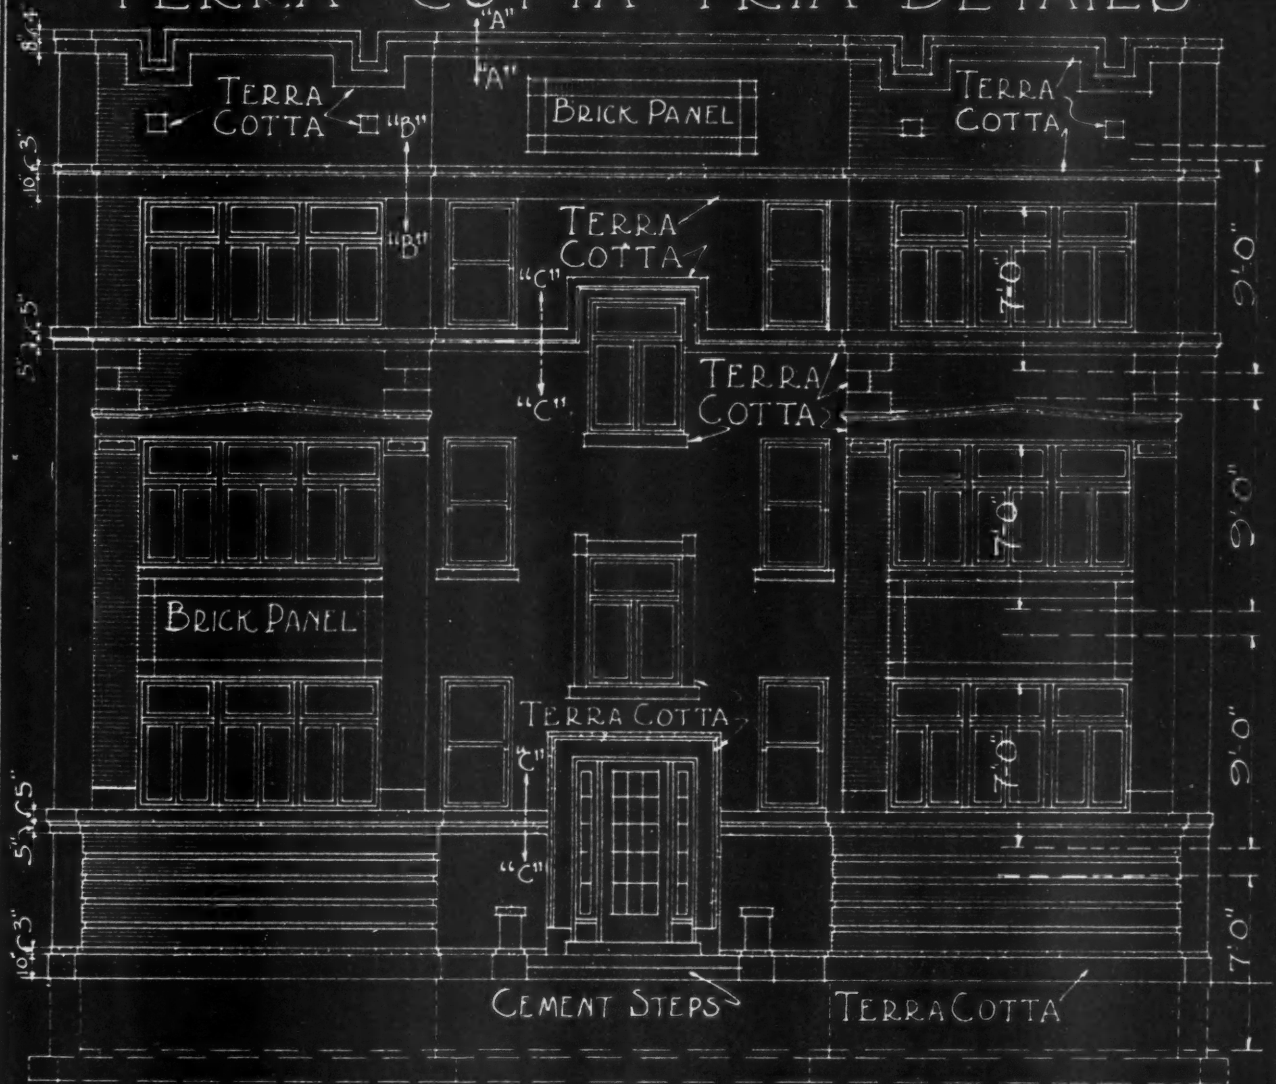 TERRA COTTA TRIM DETAILS
"A"
"A"
TERRA
COTTA
"B"
BRICK PANEL
TERRA
COTTA
"B"
TERRA
COTTA
"C"
7'-0"
9'-0"
"C"
TERRA
COTTA
7'-0"
9'-0"
BRICK PANEL
TERRA COTTA
"C"
7'-0"
9'-0"
"C"
7'-0"
CEMENT STEPS
TERRA COTTA